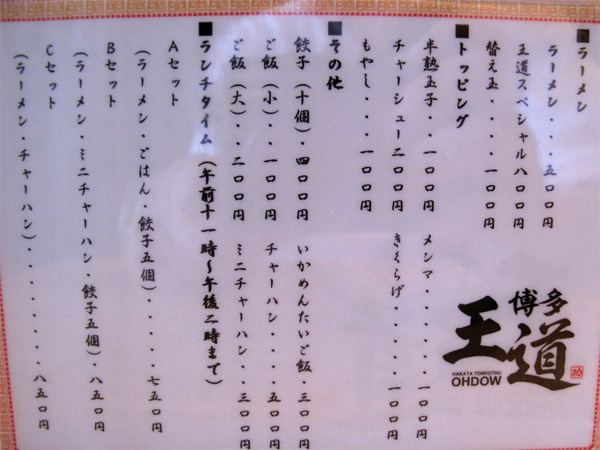 ■ラーメン
ラーメン・・・五〇〇円
王道スペシャル八〇〇円
替え玉・・・・一〇〇円
■トッピング
半熟玉子・・一〇〇円 メンマ・・・・・一〇〇円
チャーシュー二〇〇円 きくらげ・・・・一〇〇円
もやし・・・一〇〇円
■その他
餃子(十個)・四〇〇円 いかめんたいご飯・三〇〇円
ご飯(小)・・一〇〇円 チャーハン・・・・五〇〇円
ご飯(大)・・二〇〇円 ミニチャーハン・・三〇〇円
■ランチタイム(午前十一時〜午後二時まで)
Aセット
(ラーメン・ごはん・餃子五個)・・・・七五〇円
Bセット
(ラーメン・ミニチャーハン・餃子五個)・・八五〇円
Cセット
(ラーメン・チャーハン)・・・・・・・・八五〇円
博多
王道
HAKATA TONKOTHU
OHDOW